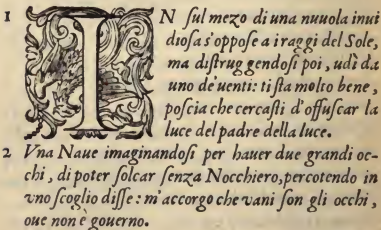 1 IN ſul mezo di una nuuola inui
dioſa s'oppoſe a i raggi del Sole,
ma diſtruggendoſi poi, udì da
uno de'uenti: ti ſta molto bene,
poſcia che cercaſti d'offuſcar la
luce del padre della luce.
2 Vna Naue imaginandoſi per hauer due grandi oc-
chi, di poter ſolcar ſenza Nocchiero, percotendo in
vno ſcoglio diſſe: m'accorgo che vani ſon gli occhi,
oue non è gouerno.